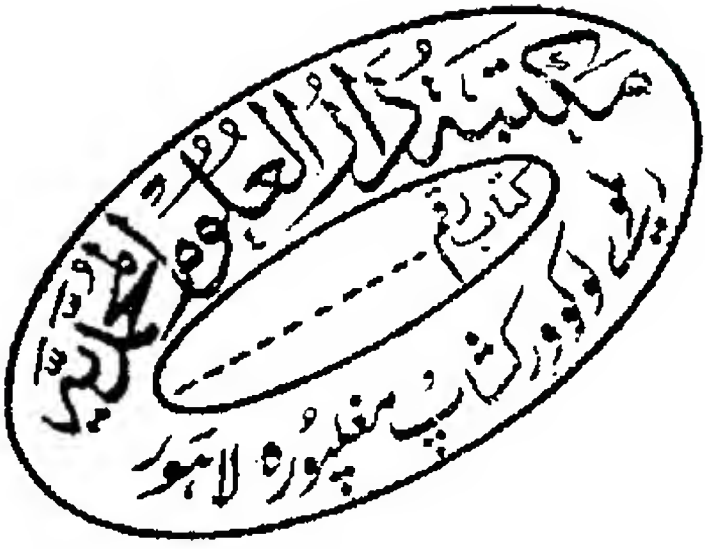 مكتبة دار العلوم المحمدية
کتاب رقم
ریلوے لوکو ورکشاپ مغلپورہ لاہور